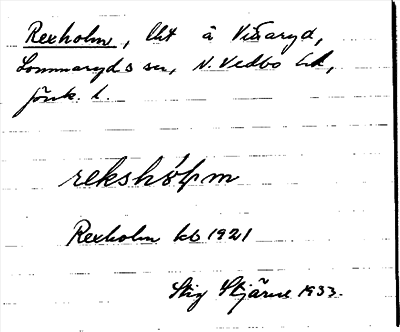 Rexholm, lht å Visaryd,
Lommaryds sn, N. Vedbo hd,
Jönk. l.
rekshòlm
Rexholm kb 1921
Stig Stjärne 1933.